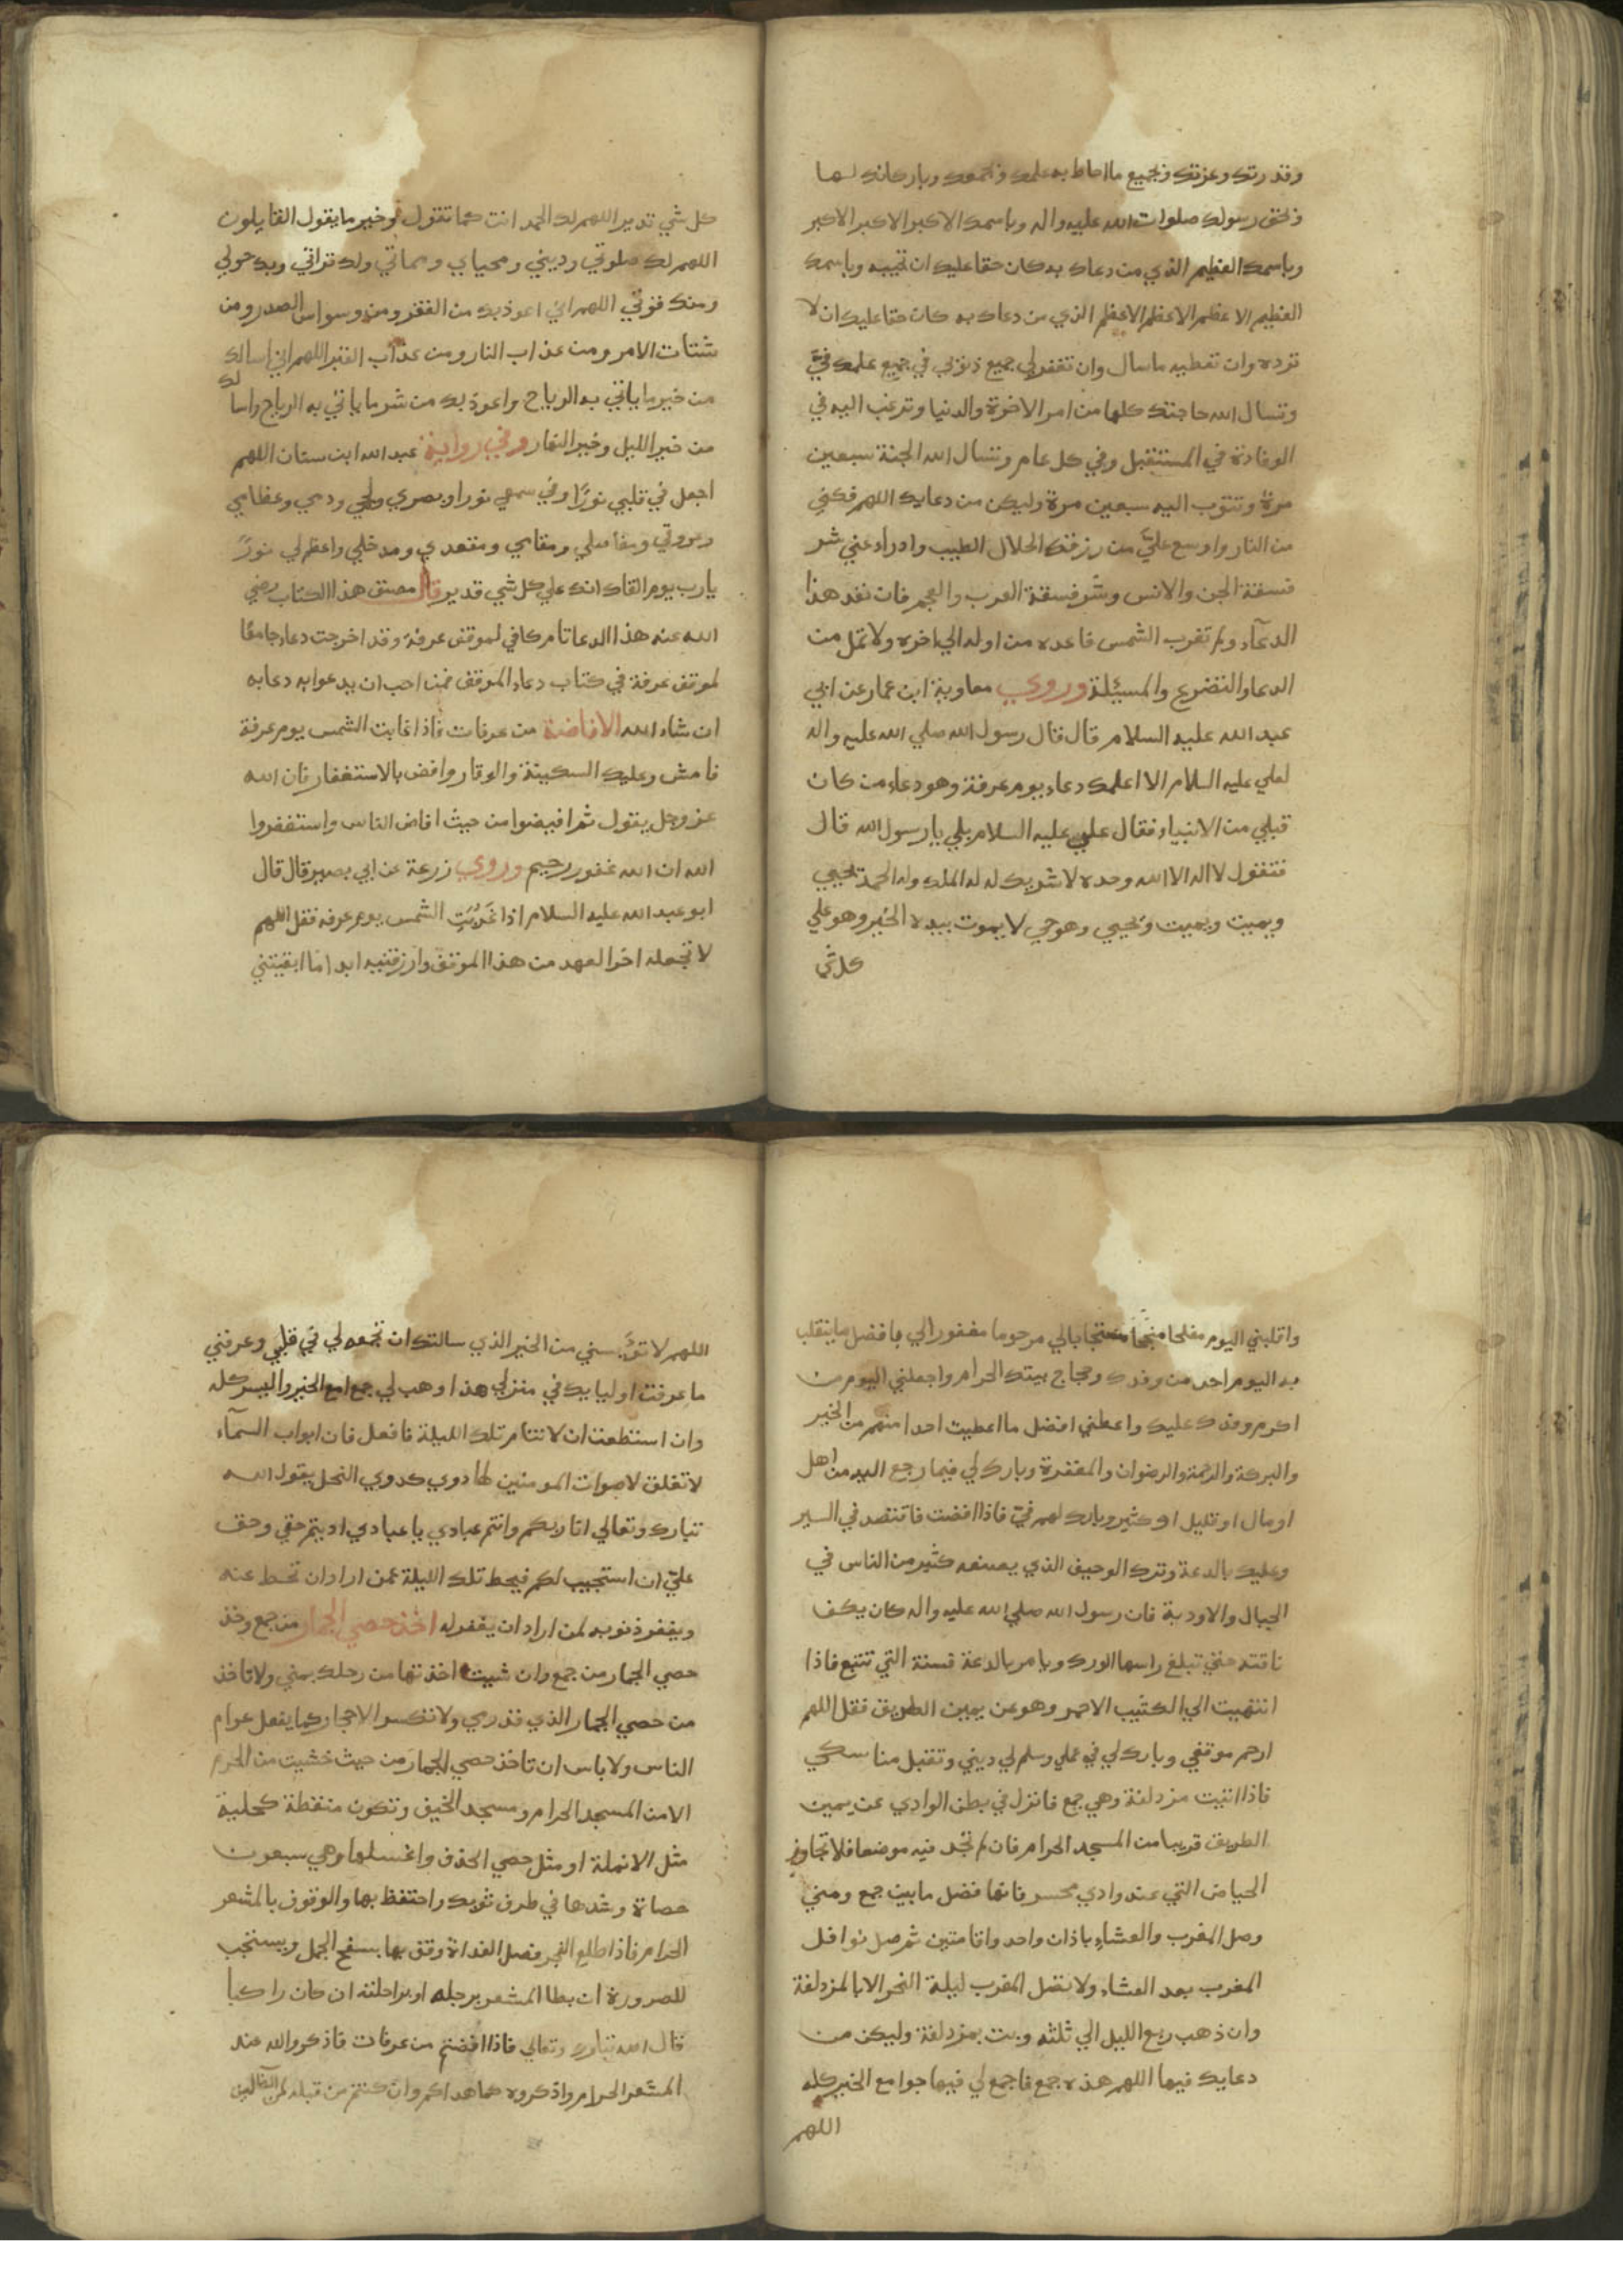 وقدرتك وعزتك وبجميع ما احاط به علمك وبجمعك وباركانك لها
وبحق رسولك صلوات الله عليه واله وباسمك الاكبر الاكبر الاكبر
وباسمك العظيم الذي من دعاك به كان حقا عليك ان تجيبه وباسمك
العظيم الاعظم الاعظم الاعظم الذي من دعاك به كان حقا عليك ان لا
ترده وان تعطيه ما سال وان تغفر لي جميع ذنوبي في جميع علمك فيّ
وتسال الله حاجتك كلها من امر الاخرة والدنيا وترغب اليه في
الوفادة في المستقبل وفي كل عام وتسال الله الجنة سبعين
مرة وتتوب اليه سبعين مرة وليكن من دعايك اللهم فكني
من النار واوسع عليّ من رزقك الحلال الطيب وادراء عني شر
فسقة الجن والانس وشر فسقة العرب والعجم فان نفد هذا
الدعآء ولم تغرب الشمس فاعده من اوله الي اخره ولا تمل من
الدعا والتضرع والمسئلة وروي معاوية ابن عمار عن ابي
عبد الله عليه السلام قال قال رسول الله صلي الله عليه واله
لعلي عليه السلام الا اعلمك دعاء يوم عرفة وهو دعاء من كان
قبلي من الانبياء فقال علي عليه السلام بلي يا رسول الله قال
فتقول لا اله الا الله وحده لا شريك له له الملك وله الحمد يحيي
ويميت ويميت ويحيي وهو حي لا يموت بيده الخير وهو علي
كل شي
كل شي قدير اللهم لك الحمد انت كما تقول وخير ما يقول القايلون
اللهم لك صلوتي وديني ومحياي ومماتي ولك تراثي وبك حولي
ومنك قوتي اللهم اني اعوذ بك من الفقر ومن وسواس الصدر ومن
شتات الامر ومن عذاب النار ومن عذاب القبر اللهم اني اسالك
من خير ما ياتي به الرياح واعوذ بك من شر ما ياتي به الرياح واسالك
من خير الليل وخير النهار وفي رواية عبد الله ابن سنان اللهم
اجعل في قلبي نورًا وفي سمعي نورا وبصري ولحمي ودمي وعظامي
وعروقي ومفاصلي ومقامي ومقعدي ومدخلي واعظم لي نورًا
يارب يوم القاك انك علي كل شي قدير قال مصنف هذا الكتاب رضي
الله عنه هذا الدعا تام كافي لموقف عرفة وقد اخرجت دعاء جامعًا
لموقف عرفة في كتاب دعاء الموقف فمن احب ان يدعو به دعا به
ان شاء الله الافاضة من عرفات فاذا غابت الشمس يوم عرفة
فامش وعليك السكينة والوقار وافض بالاستغفار فان الله
عز وجل يقول ثم افيضوا من حيث افاض الناس واستغفروا
الله ان الله غفور رحيم وروي زرعة عن ابي بصير قال قال
ابو عبد الله عليه السلام اذا غربت الشمس يوم عرفه فقل اللهم
لا تجعله اخر العهد من هذا الموقف وارزقنيه ابدا ما ابقيتني
واقلبني اليوم مفلحا منجحًا مستجابا لي مرحوما مغفورا لي بافضل ما ينقلب
به اليوم احد من وفدك وحجاج بيتك الحرام واجعلني اليوم من
اكرم وفدك عليك واعطني افضل ما اعطيت احدا منهم من الخير
والبركة والرحمة والرضوان والمغفرة وبارك لي فيما ارجع اليه من اهل
او مال او قليل او كثير وبارك لهم فيّ فاذا افضت فاقتصد في السير
وعليك بالدعة وترك الوجيف الذي يصنعه كثير من الناس في
الجبال والاودية فان رسول الله صلي الله عليه واله كان يكف
ناقته حتي تبلغ راسها الورك ويامر بالدعة فسنة التي تتبع فاذا
انتهيت الي الكثيب الاحمر وهو عن يمين الطريق فقل اللهم
ارحم موقفي وبارك لي في عملي وسلم لي ديني وتقبل مناسكي
فاذا اتيت مزدلفة وهي جمع فانزل في بطن الوادي عن يمين
الطريق قريبا من المسجد الحرام فان لم تجد فيه موضعا فلا تجاوز
الحياض التي عند وادي محسر فانها فضل ما بين جمع ومني
وصل المغرب والعشاء باذان واحد واقامتين ثم صل نوافل
المغرب بعد العشاء ولا تصل المغرب ليلة النحر الا بالمزدلفة
وان ذهب ربع الليل الي ثلثه وبت بمزدلفة وليكن من
دعايك فيها اللهم هذه جمع فاجمع لي فيها جوامع الخير كله
اللهم
اللهم لا تؤيسني من الخير الذي سالتك ان تجمعه لي في قلبي وعرفني
ما عرفت اوليايك في منزلي هذا وهب لي جوامع الخير واليسر كله
وان استطعت ان لا تنام تلك الليلة فافعل فان ابواب السمآء
لا تغلق لاصوات المومنين لها دوي كدوي النحل يقول الله
تبارك وتعالي انا ربكم وانتم عبادي يا عبادي اديتم حقي وحق
عليّ ان استجيب لكم فيحط تلك الليلة عمن اراد ان تحط عنه
ويغفر ذنوبه لمن اراد ان يغفر له اخذ حصي الجمار من جمع وخذ
حصي الجمار من جمع وان شيت اخذتها من رحلك بمني ولا تاخذ
من حصي الجمار الذي قد رمي ولا تكسر الاحجار كما يفعل عوام
الناس ولا باس ان تاخذ حصي الجمار من حيث خشيت من الحرم
الا من المسجد الحرام ومسجد الخيف وتكون منقطة كحلية
مثل الانملة او مثل حصي الخذف واغسلها وهي سبعون
حصاة وشدها في طرف ثوبك واحتفظ بها والوقوف بالمشعر
الحرام فاذا طلع الفجر فصل الغداة وقف بها بسفح الجبل ويستحب
للصرورة ان يطا المشعر برجله او براحلته ان كان راكبا
قال الله تبارك وتعالي فاذا افضتم من عرفات فاذكروا الله عند
المشعر الحرام واذكروه كما هداكم وان كنتم من قبله لمن الضالين